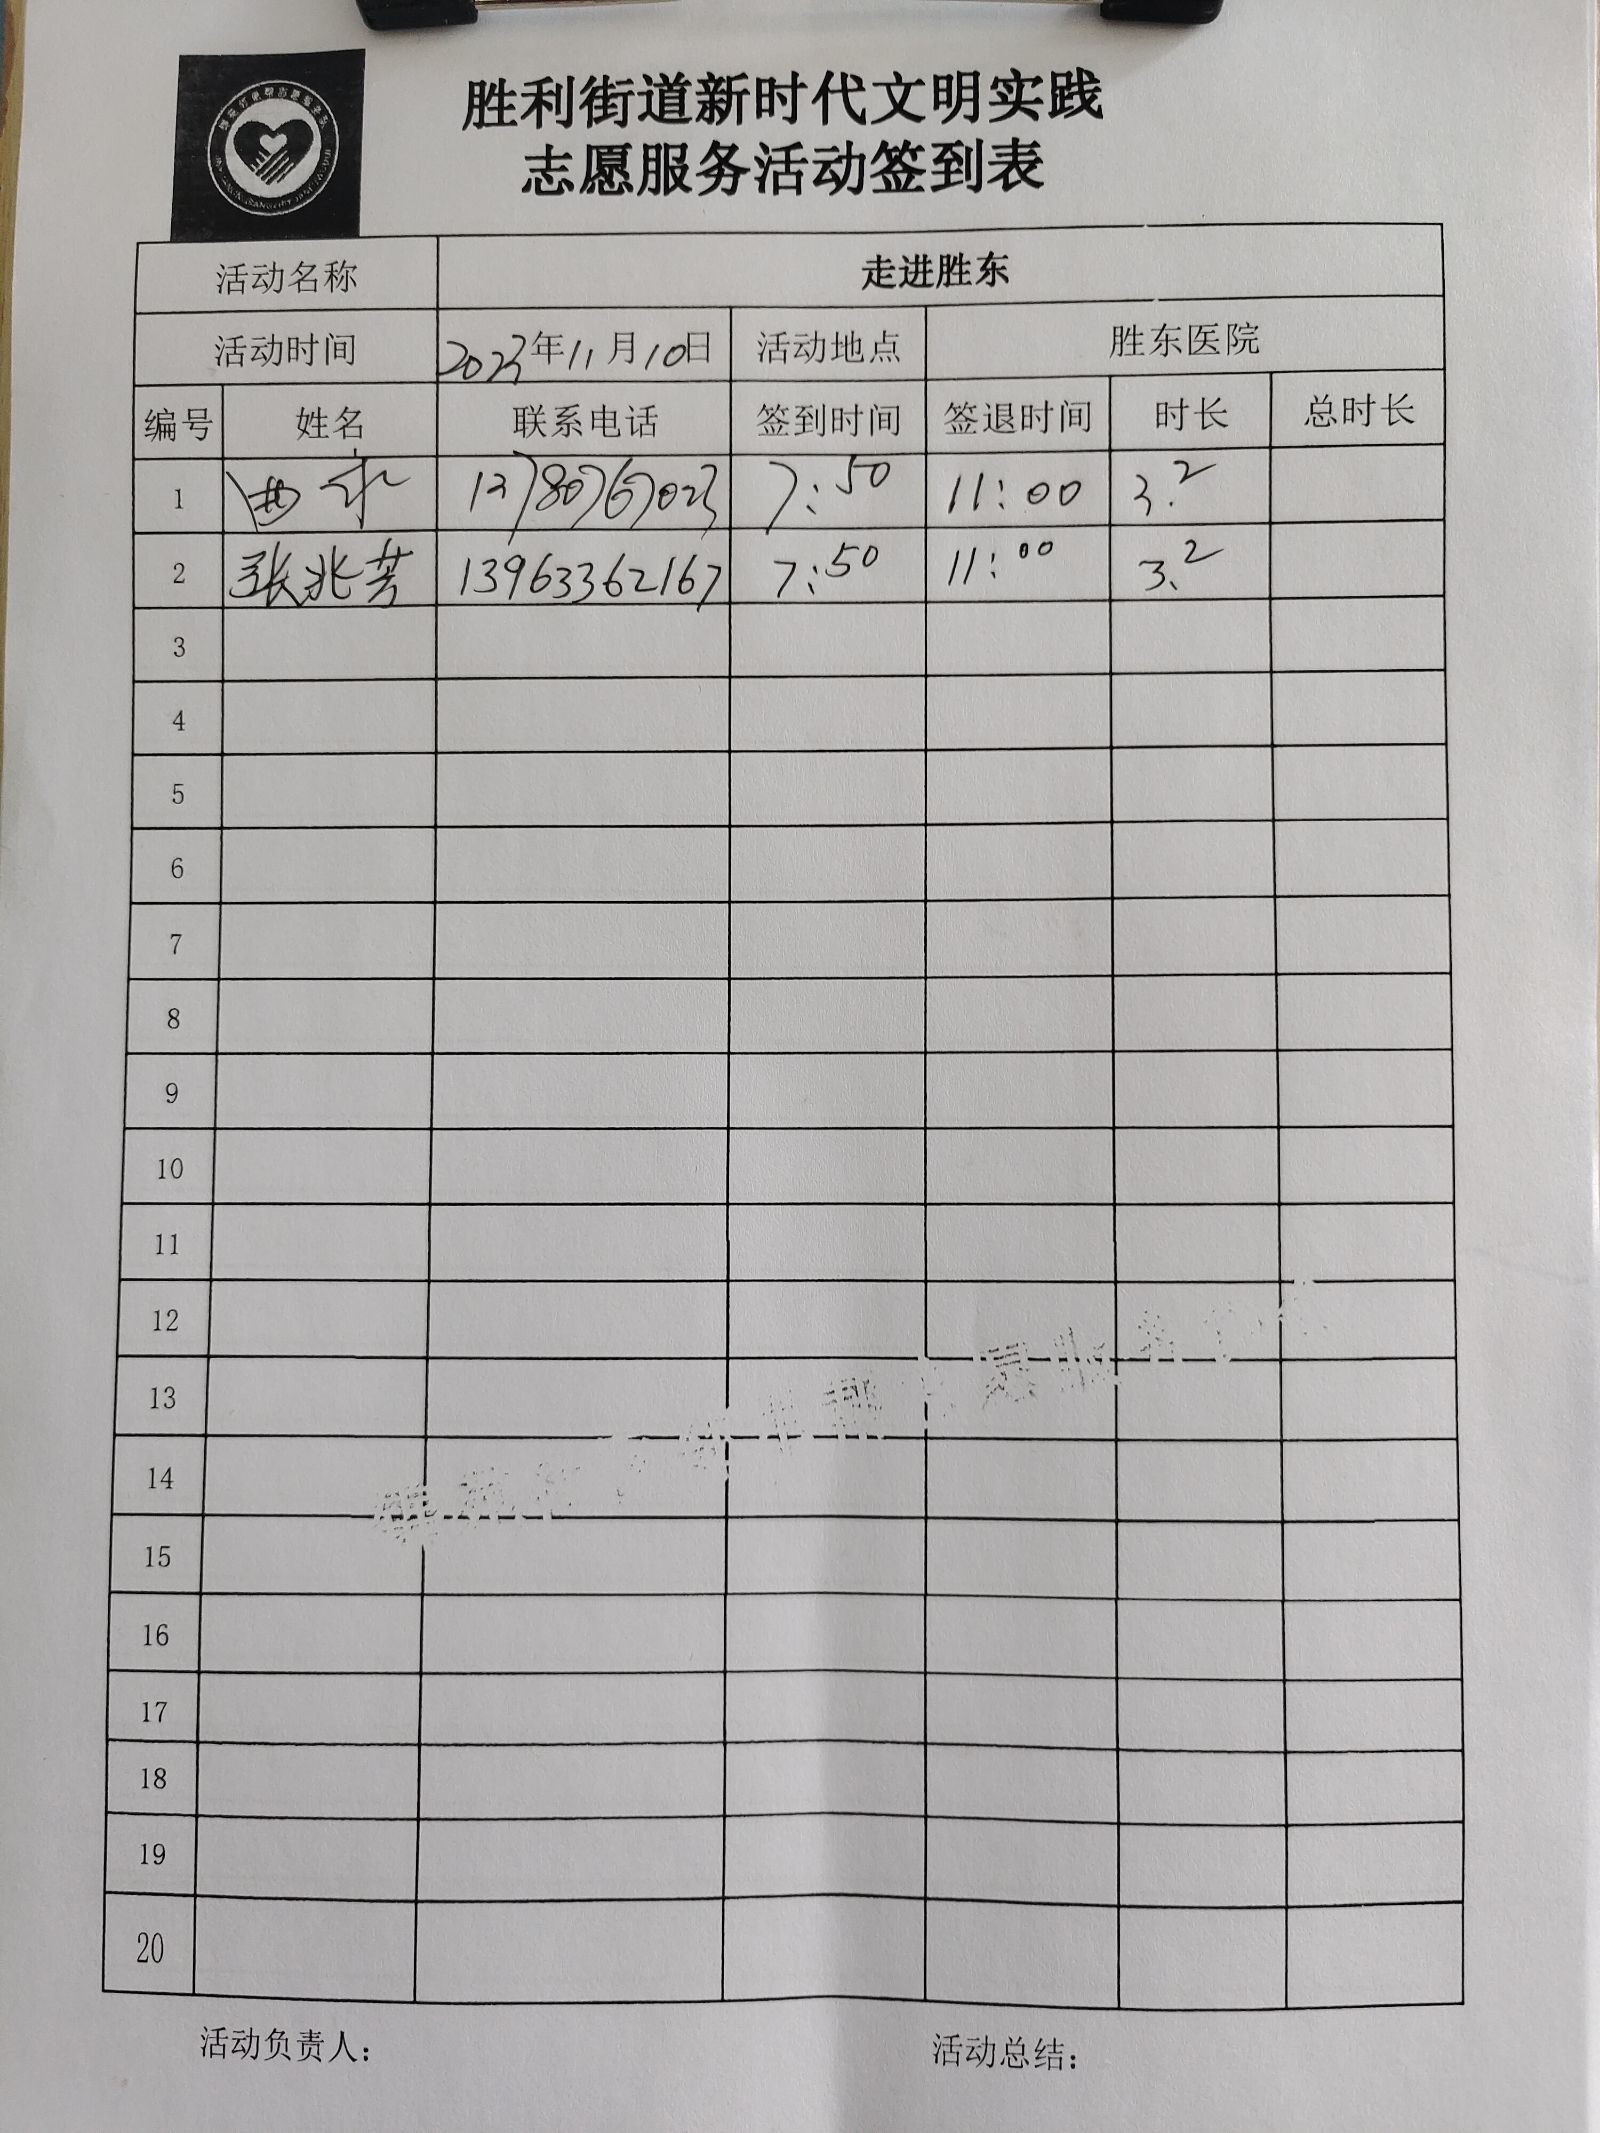 胜利街道新时代文明实践
志愿服务活动签到表
活动名称 走进胜东
活动时间 2023年11月10日 活动地点 胜东医院
编号 姓名 联系电话 签到时间 签退时间 时长 总时长
1 7:50 11:00 3.2
2 张兆芳 13963362167 7:50 11:00 3.2
3
4
5
6
7
8
9
10
11
12
13
14
15
16
17
18
19
20
活动负责人: 活动总结: